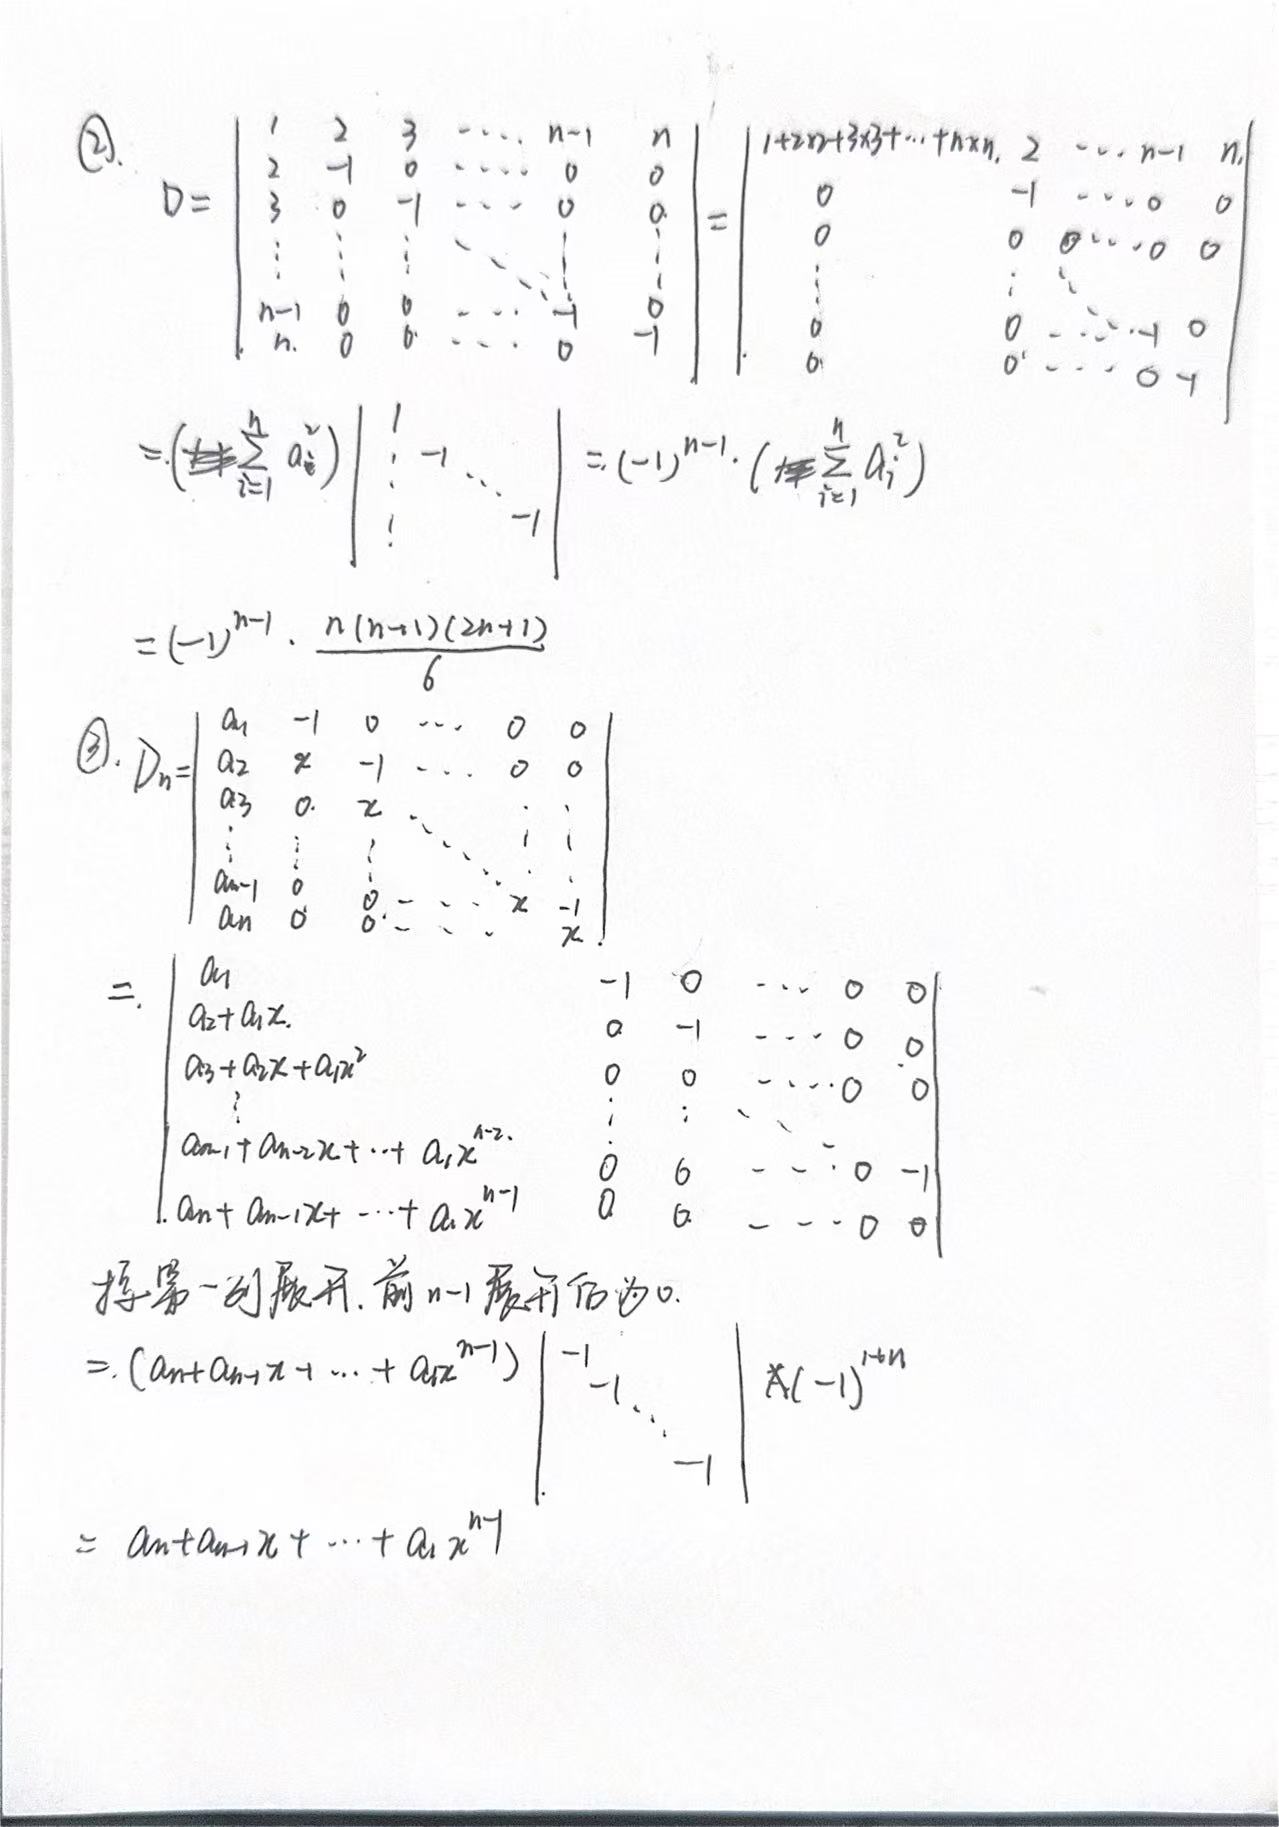 ②.
D= | 1 2 3 ---- n-1 n | = | 1+2×2+3×3+…+n×n. 2 --- n-1 n. |
2 -1 0 ---- 0 0 0 -1 ---- 0 0
3 0 -1 --- 0 0. 0 0 0 --- 0 0
⋮ ⋮ ⋮ ⋱ ⋮ ⋮ ⋮ ⋮ ⋱
n-1 0 0 --- -1 0 0 0 --- -1 0
n. 0 0. --- 0 -1 0. 0 ---- 0 -1
=.( ∑_{i=1}^{n} a_i^2 ) | 1 ⋮ -1 ⋱ -1 | =.(-1)^{n-1}·( ∑_{i=1}^{n} a_i^2 )
=(-1)^{n-1}· n(n+1)(2n+1)/6
③. Dn= | a1 -1 0 --- 0 0 |
a2 x -1 --- 0 0
a3 0. x ⋱ ⋮ ⋮
⋮ ⋮ ⋮ ⋱
an-1 0 0 --- x -1
an 0 0 --- x.
=. | a1 -1 0 --- 0 0 |
a2+a1x. 0 -1 --- 0 0
a3+a2x+a1x^2 0 0 ---- 0 0
⋮ ⋮ ⋮ ⋱
an-1+an-2x+…+a1x^{n-2}. 0 0 --- 0 -1
an+an-1x+…+a1x^{n-1} 0 0 --- 0 0
按第一列展开.前n-1展开后为0.
=.(an+an-1x+…+a1x^{n-1}) | -1 -1 ⋱ -1 | ×(-1)^{1+n}
= an+an-1x+…+a1x^{n-1}